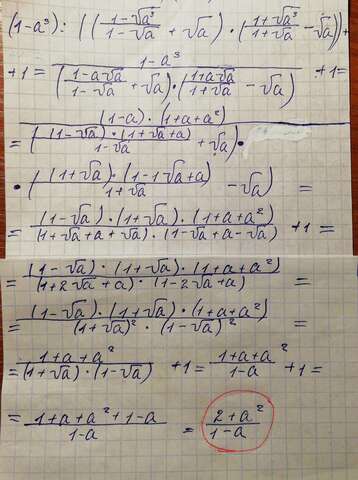 (1-a³) : ((1-√a³/1-√a + √a) · (1+√a³/1+√a - √a)) +
+1 = 1-a³/(1-a√a/1-√a + √a) · (1+a√a/1+√a - √a) +1 =
= (1-a)·(1+a+a²)/((1-√a)·(1+√a+a)/1-√a + √a) ·
· ((1+√a)·(1-√a+a)/1+√a - √a) =
= (1-√a)·(1+√a)·(1+a+a²)/(1+√a+a+√a)·(1-√a+a-√a) +1 =
= (1-√a)·(1+√a)·(1+a+a²)/(1+2√a+a)·(1-2√a+a) =
= (1-√a)·(1+√a)·(1+a+a²)/(1+√a)²·(1-√a)² =
= 1+a+a²/(1+√a)·(1-√a) +1 = 1+a+a²/1-a +1 =
= 1+a+a²+1-a/1-a = 2+a²/1-a